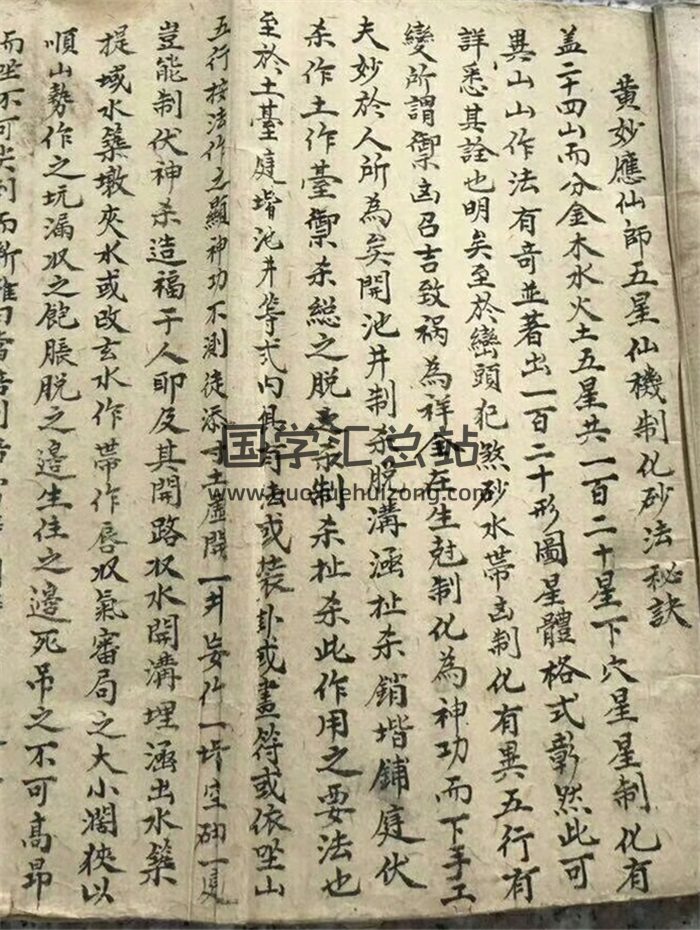 黄妙應仙師五星仙機制化砂法秘訣
盖二十四山而分金木水火土五星共一百二十星下穴星星制化有
異山山作法有奇並著出一百二十形圖星體格式彰然此可
詳悉其詮也明矣至於巒頭犯煞砂水帶凶制化有異五行有
變所謂禦凶召吉致祸為祥全在生尅制化為神功而下手工
夫妙於人所為矣開池井制杀脱溝涵扯杀銷堦鋪庭伏
杀作土作臺禦杀総之脱制杀扯杀此作用之要法也
至於土臺庭堦池井等式内俱有法或装卦或畫符或依坐山
五行按法作之顯神功不測徒添寸土虚開一井妄作一坪空砌一
豈能制伏神杀造福于人耶及其開路収水開溝埋涵出水築
提域水築墩夾水或改玄水作帶作唇収氣審局之大小濶狹以
順山勢作之坑漏収之飽脹脱之邊生住之邊死吊之不可高昂
而坐不可尖削而
国学汇总站
www.guoxuehuizong.com